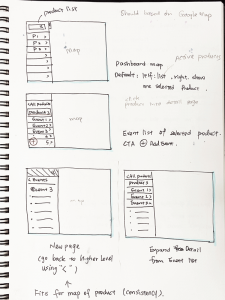 product list
Should based on Google Map
P1 >
P2 >
P3 >
map
active products
Dashboard map
Default: left: list, right: show
one selected product.
< All products
product 3
Event 1
Event 2
Event 3
map
Event list of selected product.
CTA ⊕ Add Event.
< Events
Event 3
map
< All products
product 3
Event 1
Event 2
New page
(go back to higher level
using "<")
Expand Detail
from Event list
Fits for map of product (consistency).